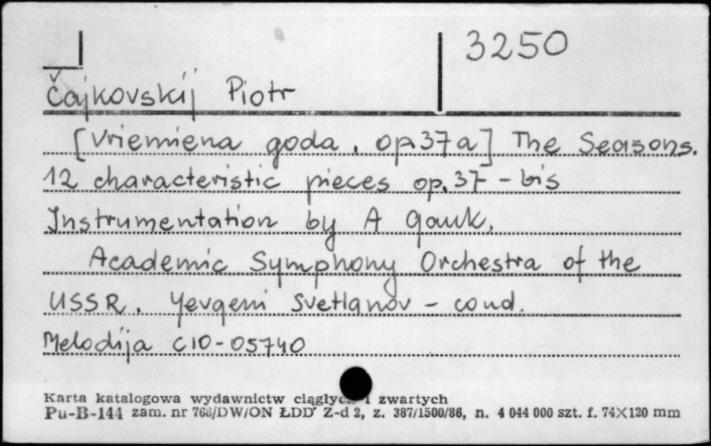 3250
Čajkovskij Piotr
[Vriemiena goda, op.37a] The Seasons.
12 characteristic pieces op.37-bis
Instrumentation by A Gauk.
Academic Symphony Orchestra of the
USSR, Yevgeni Svetlanov - cond.
Melodija C10-05740
Karta katalogowa wydawnictw ciągłych i zwartych
Pu-B-144 zam. nr 768/DW/ON ŁDD Z-d 2, z. 387/1500/86, n. 4 044 000 szt. f. 74×120 mm